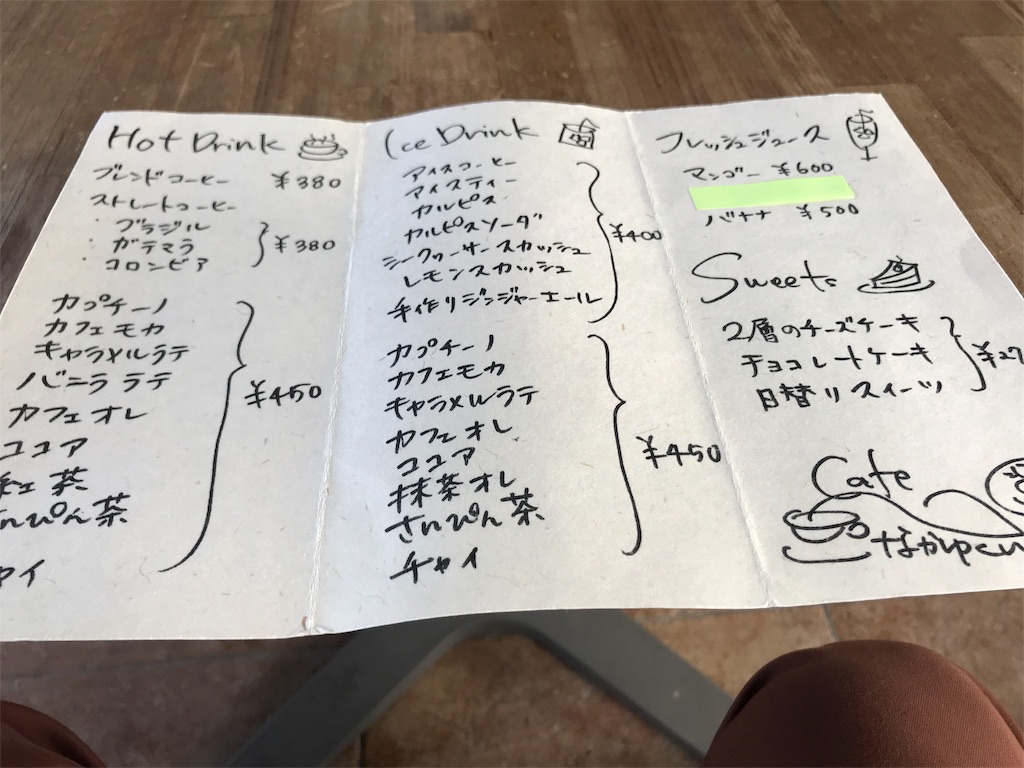 Hot Drink
ブレンドコーヒー ¥380
ストレートコーヒー
・ブラジル
・ガテマラ
・コロンビア
¥380
カプチーノ
カフェモカ
キャラメルラテ
バニララテ
カフェオレ
ココア
紅茶
さんぴん茶
ャイ
¥450
Ice Drink
アイスコーヒー
アイスティー
カルピス
カルピスソーダ
シークヮーサースカッシュ
レモンスカッシュ
手作りジンジャーエール
¥400
カプチーノ
カフェモカ
キャラメルラテ
カフェオレ
ココア
抹茶オレ
さんぴん茶
チャイ
¥450
フレッシュジュース
マンゴー ¥600
バナナ ¥500
Sweets
2層のチーズケーキ
チョコレートケーキ
日替りスイーツ
¥27
Cafe
なかゆくい